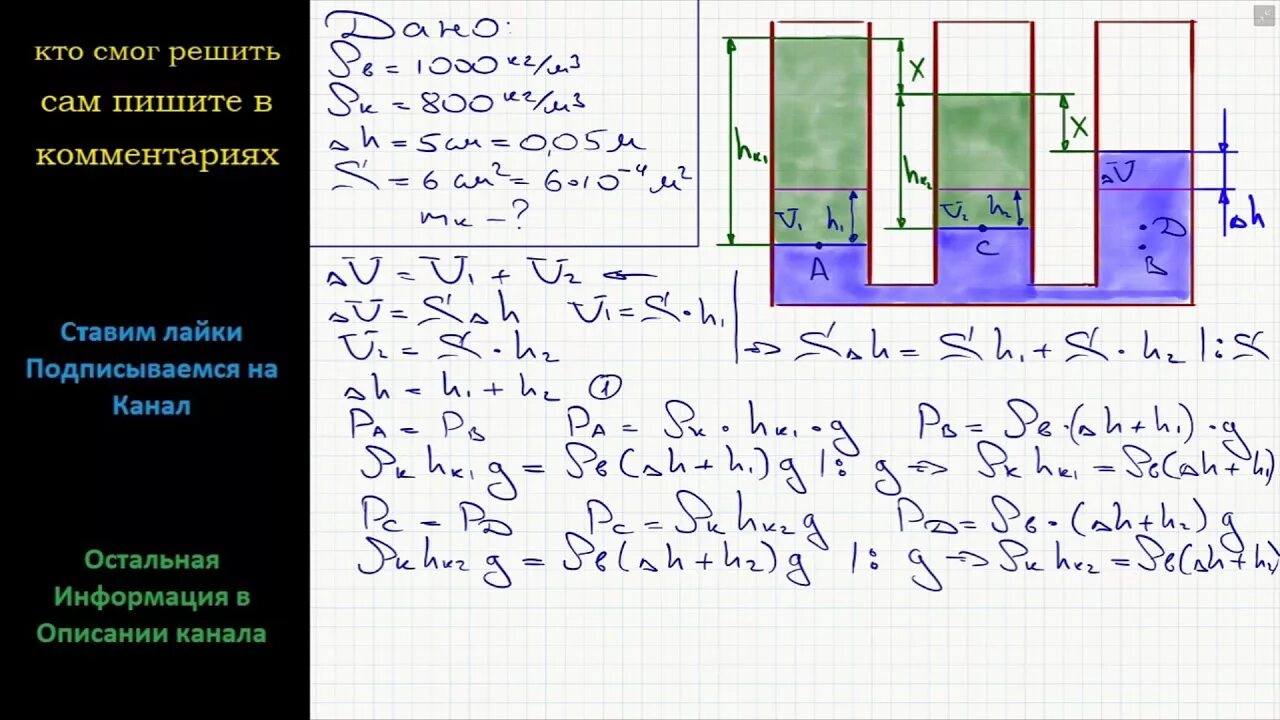 кто смог решить
сам пишите в
комментариях
Ставим лайки
Подписываемся на
Канал
Остальная
Информация в
Описании канала
Дано:
ρв = 1000 кг/м³
ρк = 800 кг/м³
Δh = 5 см = 0,05 м
S = 6 см² = 6·10⁻⁴ м²
mк - ?
hк₁
X
hк₂
X
V₁ h₁
V₂ h₂
ΔV
Δh
A
C
D
B
ΔV = V₁ + V₂ ←
ΔV = SΔh V₁ = S·h₁
V₂ = S·h₂
=> SΔh = Sh₁ + S·h₂ |:S
Δh = h₁ + h₂ ①
PA = PB PA = ρк·hк₁·g PB = ρв·(Δh+h₁)·g
ρк hк₁ g = ρв(Δh+h₁)g |: g => ρк hк₁ = ρв(Δh+h₁)
PC = PD PC = ρк hк₂ g PD = ρв·(Δh+h₂)g
ρк hк₂ g = ρв(Δh+h₂)g |: g => ρк hк₂ = ρв(Δh+h₂)